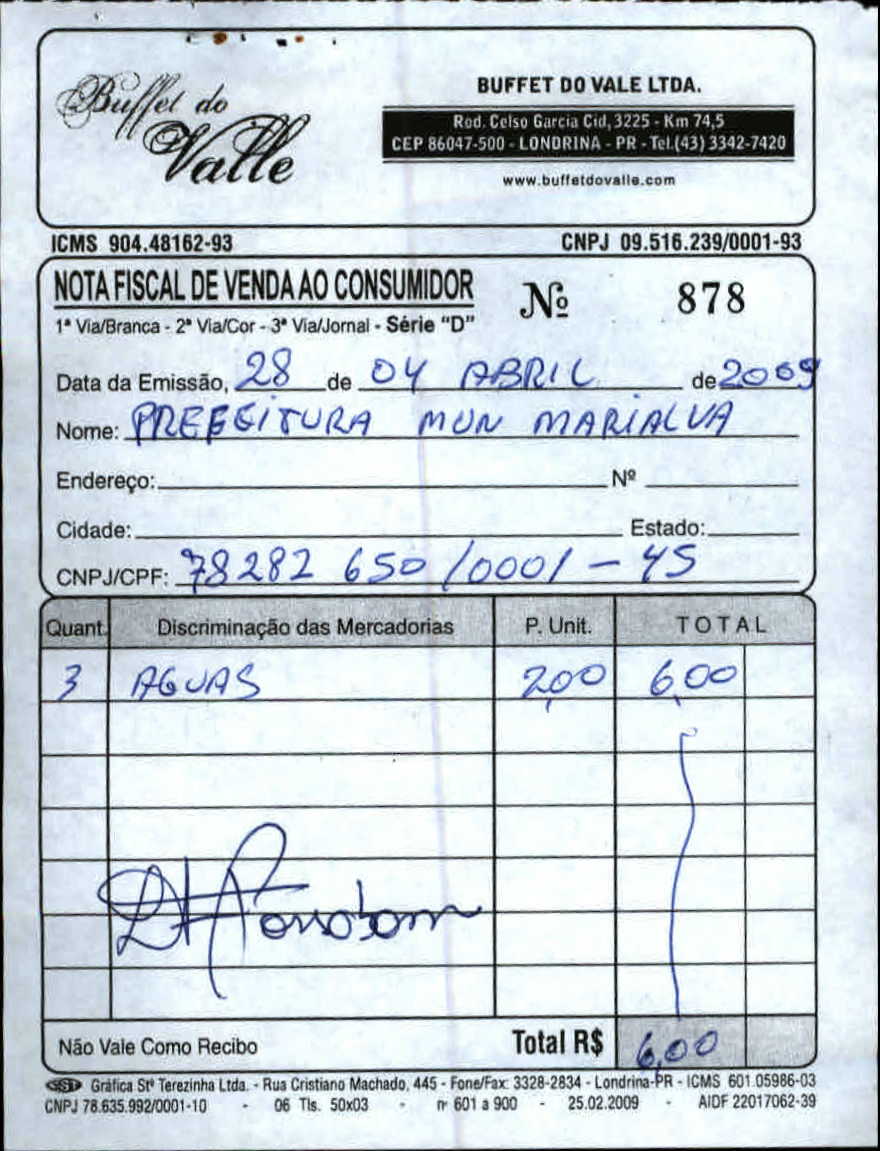 Buffet do
Valle
BUFFET DO VALE LTDA.
Rod. Celso Garcia Cid, 3225 - Km 74,5
CEP 86047-500 - LONDRINA - PR - Tel.(43) 3342-7420
www.buffetdovalle.com
ICMS 904.48162-93 CNPJ 09.516.239/0001-93
NOTA FISCAL DE VENDA AO CONSUMIDOR Nº 878
1ª Via/Branca - 2ª Via/Cor - 3ª Via/Jornal - Série "D"
Data da Emissão, 28 de 04 ABRIL de 2009
Nome: PREFEITURA MUN MARIALVA
Endereço: Nº
Cidade: Estado:
CNPJ/CPF: 78282 650/0001-45
Quant. Discriminação das Mercadorias P. Unit. TOTAL
3 AGUAS 2,00 6,00
Não Vale Como Recibo Total R$ 6,00
Gráfica Stª Terezinha Ltda. - Rua Cristiano Machado, 445 - Fone/Fax: 3328-2834 - Londrina-PR - ICMS 601.05986-03
CNPJ 78.635.992/0001-10 - 06 Tls. 50x03 - nº 601 a 900 - 25.02.2009 - AIDF 22017062-39